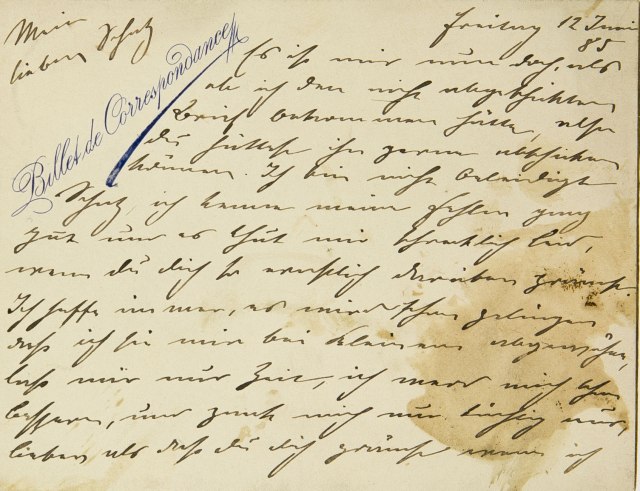 Mein
lieber Schatz
Billet de Correspondance
Freitag 12 Juni
85
Es ist mir nun doch, als
ob ich den nicht abgeschickten
Brief bekommen hätte, also
du hättest ihn gerne abschicken
können. Ich bin nicht beleidigt
Schatz, ich kenne meine Fehler ganz
gut und es thut mir schrecklich leid,
wenn du dich so ernstlich darüber grämst.
Ich hoffe immer, es wird schon gelingen
daß ich sie mir bei Kleinem abgewöhne,
laß mir nur Zeit, ich werd mich schon
bessern, und zank mich nur tüchtig aus,
lieber als daß du dich grämst wenn ich